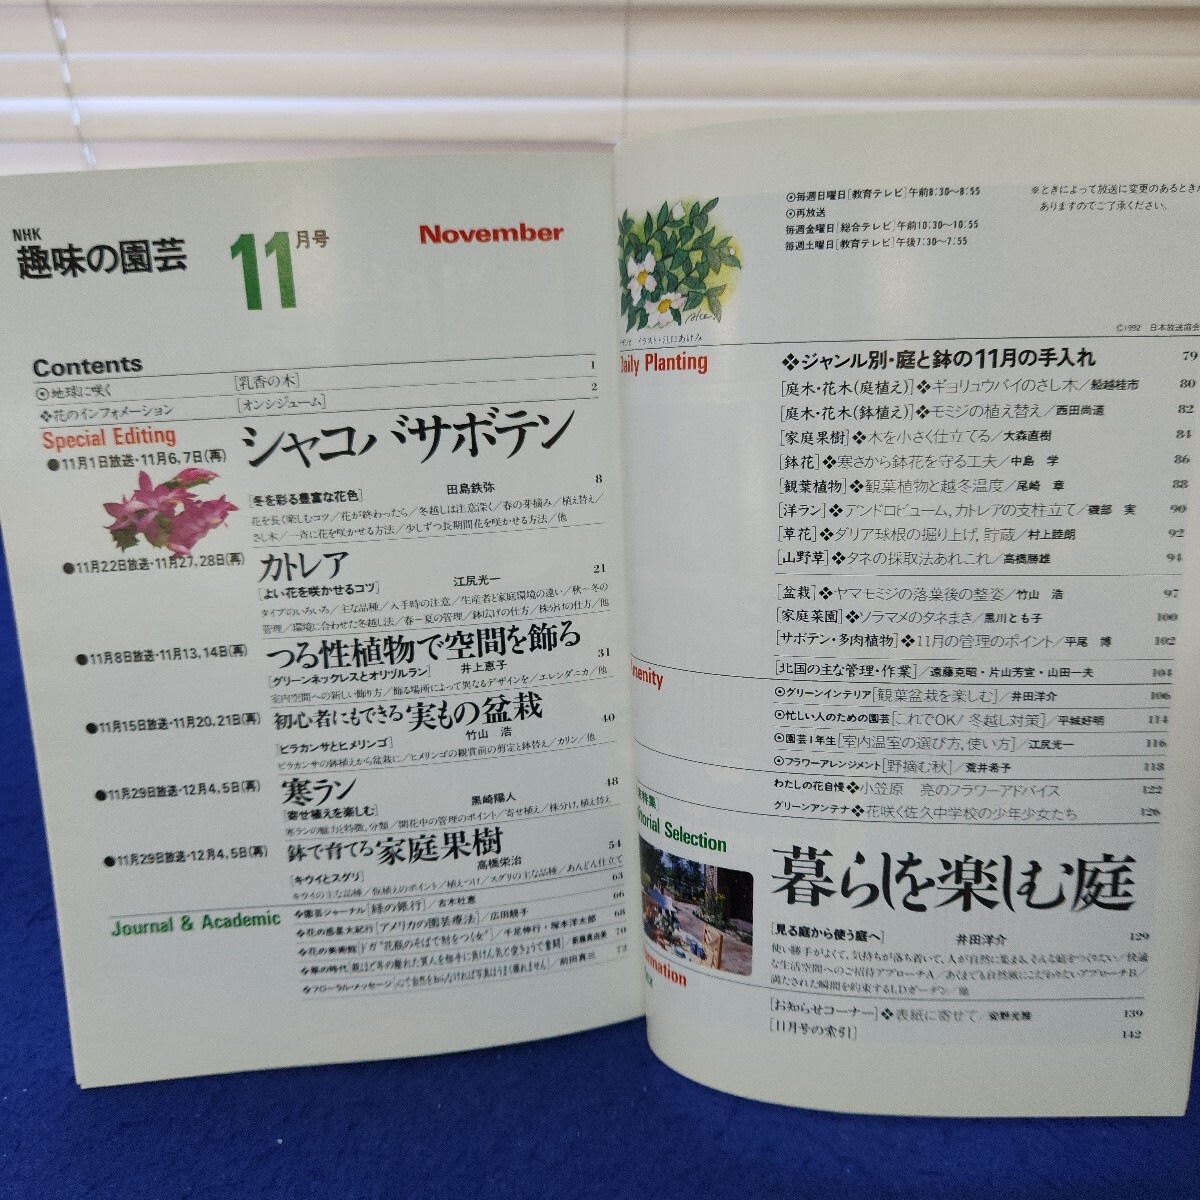 NHK
趣味の園芸
11月号
November
Contents
⦿地球に咲く [乳香の木] 1
❖花のインフォメーション [オンシジューム] 2
Special Editing
●11月1日放送・11月6,7日(再)
シャコバサボテン
[冬を彩る豊富な花色] 田島鉄弥 8
花を長く楽しむコツ/花が終わったら/冬越しは注意深く/春の芽摘み/植え替え/
さし木/一斉に花を咲かせる方法/少しずつ長期間花を咲かせる方法/他
●11月22日放送・11月27,28日(再)
カトレア
[よい花を咲かせるコツ] 江尻光一 21
タイプのいろいろ/主な品種/入手時の注意/生産者と家庭環境の違い/秋〜冬の
管理/環境に合わせた冬越し法/春〜夏の管理/鉢広げの仕方/株分けの仕方/他
●11月8日放送・11月13,14日(再)
つる性植物で空間を飾る
[グリーンネックレスとオリヅルラン] 井上恵子 31
室内空間への新しい飾り方/飾る場所によって異なるデザインを/エレンダニカ/他
●11月15日放送・11月20,21日(再)
初心者にもできる実もの盆栽
竹山 浩 40
[ピラカンサとヒメリンゴ]
ピラカンサの鉢植えから盆栽に/ヒメリンゴの観賞前の剪定と鉢替え/カリン/他
●11月29日放送・12月4,5日(再)
寒ラン
[寄せ植えを楽しむ] 黒崎陽人 48
寒ランの魅力と特徴,分類/開花中の管理のポイント/寄せ植え/株分け,植え替え
●11月29日放送・12月4,5日(再)
鉢で育てる家庭果樹
高橋栄治 54
[キウイとスグリ]
キウイの主な品種/仮植えのポイント/植えつけ/スグリの主な品種/あんどん仕立て
Journal & Academic
❖園芸ジャーナル[緑の銀行]/古木杜恵 63
❖花の惑星大紀行[アメリカの園芸療法]/広田靚子 66
❖花の美術館[ドガ“花瓶のそばで肘をつく女”]/千足伸行・塚本洋太郎 68
70
72
❖フローラル・メッセージ[心で自然を知らなければ写真はうまく撮れません]/前田真三
⦿毎週日曜日[教育テレビ]午前8:30〜8:55
⦿再放送
毎週金曜日[総合テレビ]午前10:30〜10:55
毎週土曜日[教育テレビ]午後7:30〜7:55
※ときによって放送に変更のあるときが
ありますのでご了承ください。
イラスト・江口あけみ
©1992 日本放送協会
Daily Planting
❖ジャンル別・庭と鉢の11月の手入れ 79
[庭木・花木(庭植え)]❖ギョリュウバイのさし木/船越桂市 80
[庭木・花木(鉢植え)]❖モミジの植え替え/西田尚道 82
[家庭果樹]❖木を小さく仕立てる/大森直樹 84
[鉢花]❖寒さから鉢花を守る工夫/中島 学 86
[観葉植物]❖観葉植物と越冬温度/尾崎 章 88
[洋ラン]❖アンドロビューム,カトレアの支柱立て/磯部 実 90
[草花]❖ダリア球根の掘り上げ,貯蔵/村上睦朗 92
[山野草]❖タネの採取法あれこれ/高橋勝雄 94
[盆栽]❖ヤマモミジの落葉後の整姿/竹山 浩 97
[家庭菜園]❖ソラマメのタネまき/黒川とも子 100
[サボテン・多肉植物]❖11月の管理のポイント/平尾 博 102
[北国の主な管理・作業]/遠藤克昭・片山芳宣・山田一夫 104
menity
⦿グリーンインテリア[観葉盆栽を楽しむ]/井田洋介 106
⦿忙しい人のための園芸[これでOK!冬越し対策]/平城好明 114
⦿園芸1年生[室内温室の選び方,使い方]/江尻光一 116
⦿フラワーアレンジメント[野摘む秋]/荒井希子 118
わたしの花自慢❖小笠原 亮のフラワーアドバイス 122
グリーンアンテナ❖花咲く佐久中学校の少年少女たち 126
特集]
torial Selection
暮らしを楽しむ庭
[見る庭から使う庭へ] 井田洋介 129
使い勝手がよくて,気持ちが落ち着いて,人が自然に集まる,そんな庭をつくりたい/快適
な生活空間へのご招待アプローチA/あくまでも自然風にこだわりたいアプローチB/
満たされた瞬間を約束するLDガーデン/他
rmation
[お知らせコーナー]❖表紙に寄せて/安野光雅 139
[11月号の索引] 142